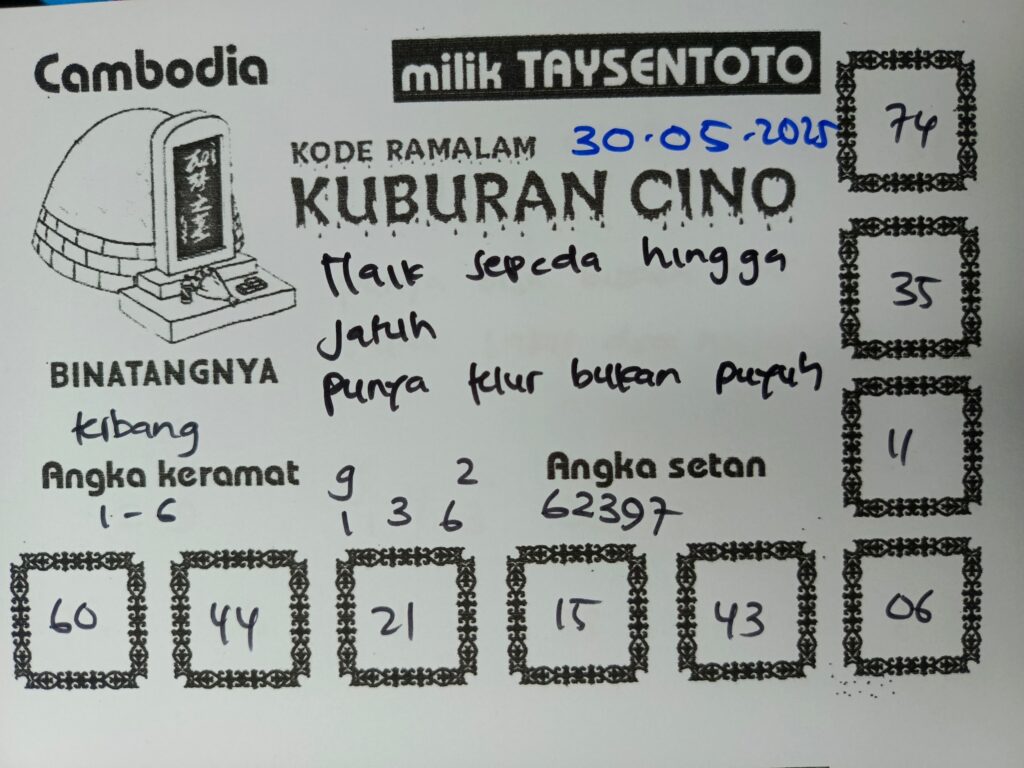 Cambodia
milik TAYSENTOTO
KODE RAMALAM 30.05.2025
KUBURAN CINO
Naik sepeda hingga
Jatuh
punya telur bukan puyuh
BINATANGNYA
kibang
Angka keramat
1-6
9 2
1 3 6
Angka setan
62397
74
35
11
06
60 44 21 15 43